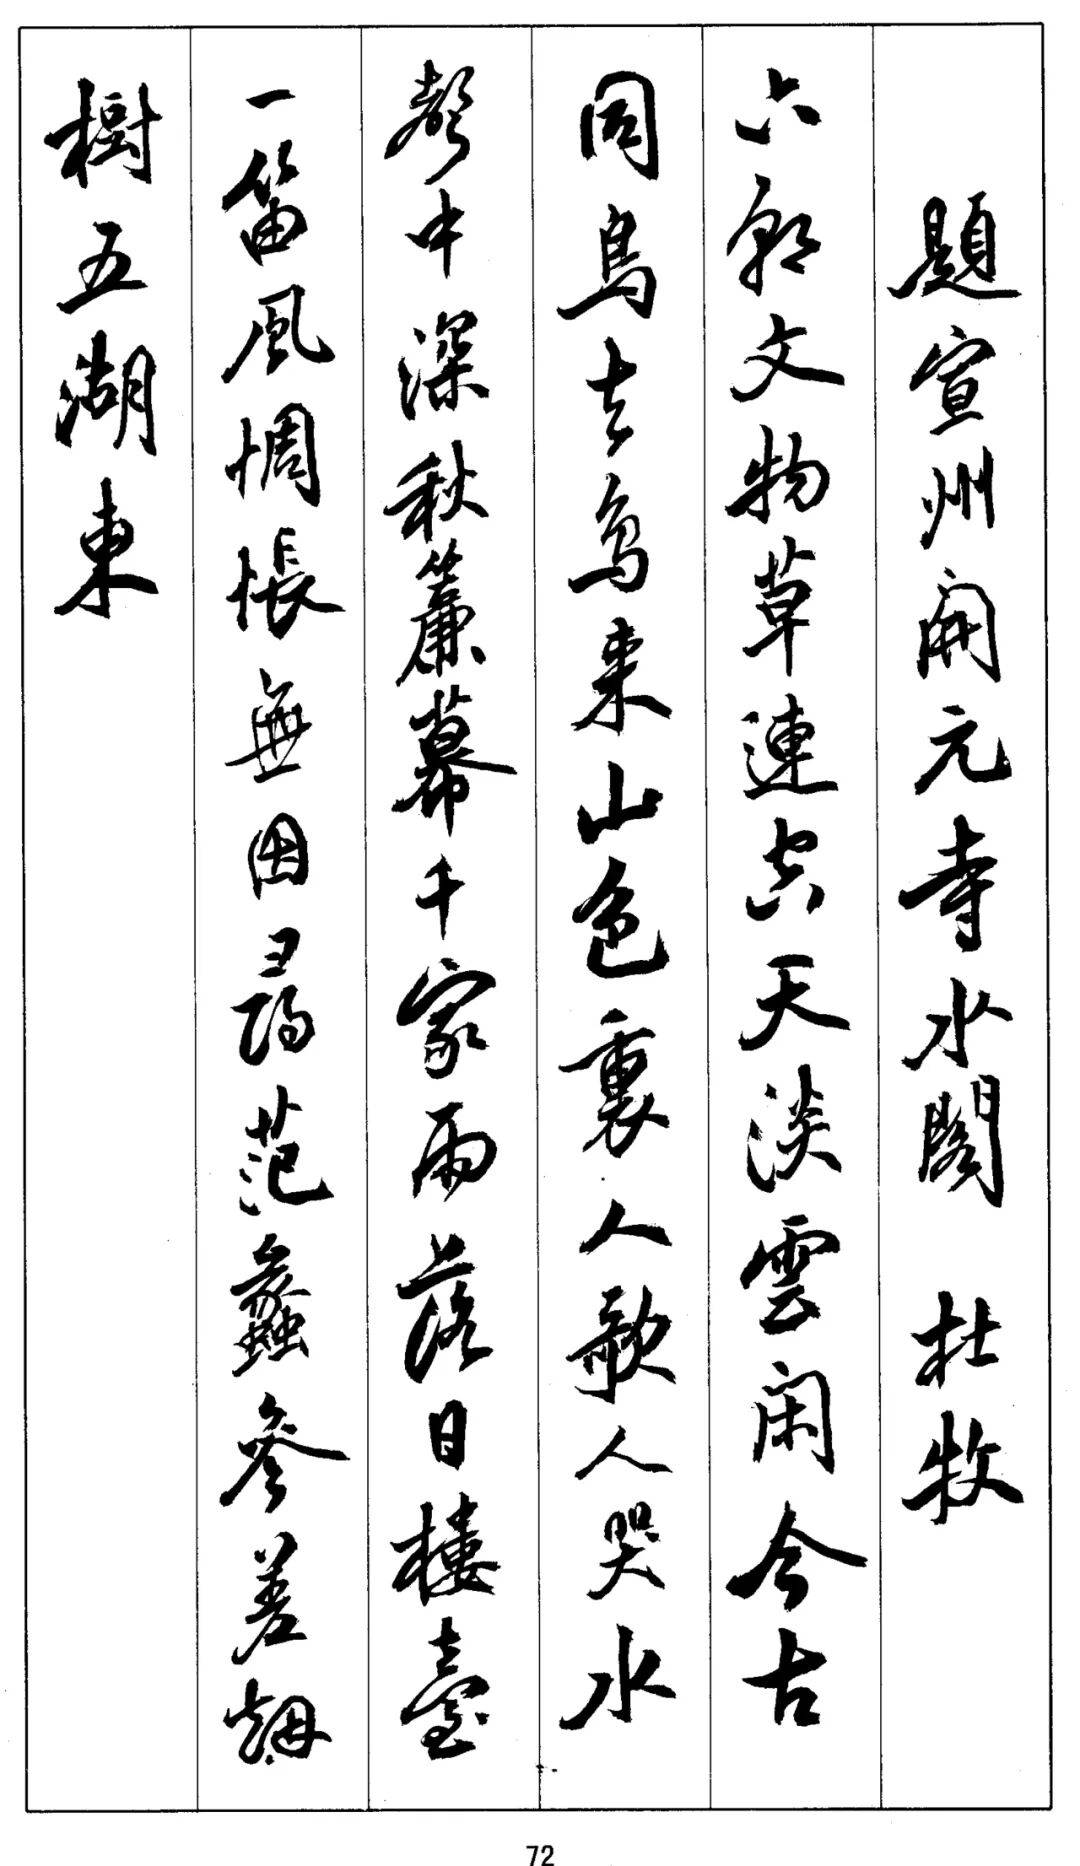 題宣州開元寺水閣　杜牧
六朝文物草連空天淡雲閑今古
同鳥去鳥來山色裏人歌人哭水
聲中深秋簾幕千家雨落日樓臺
一笛風惆悵無因尋范蠡參差烟
樹五湖東
72